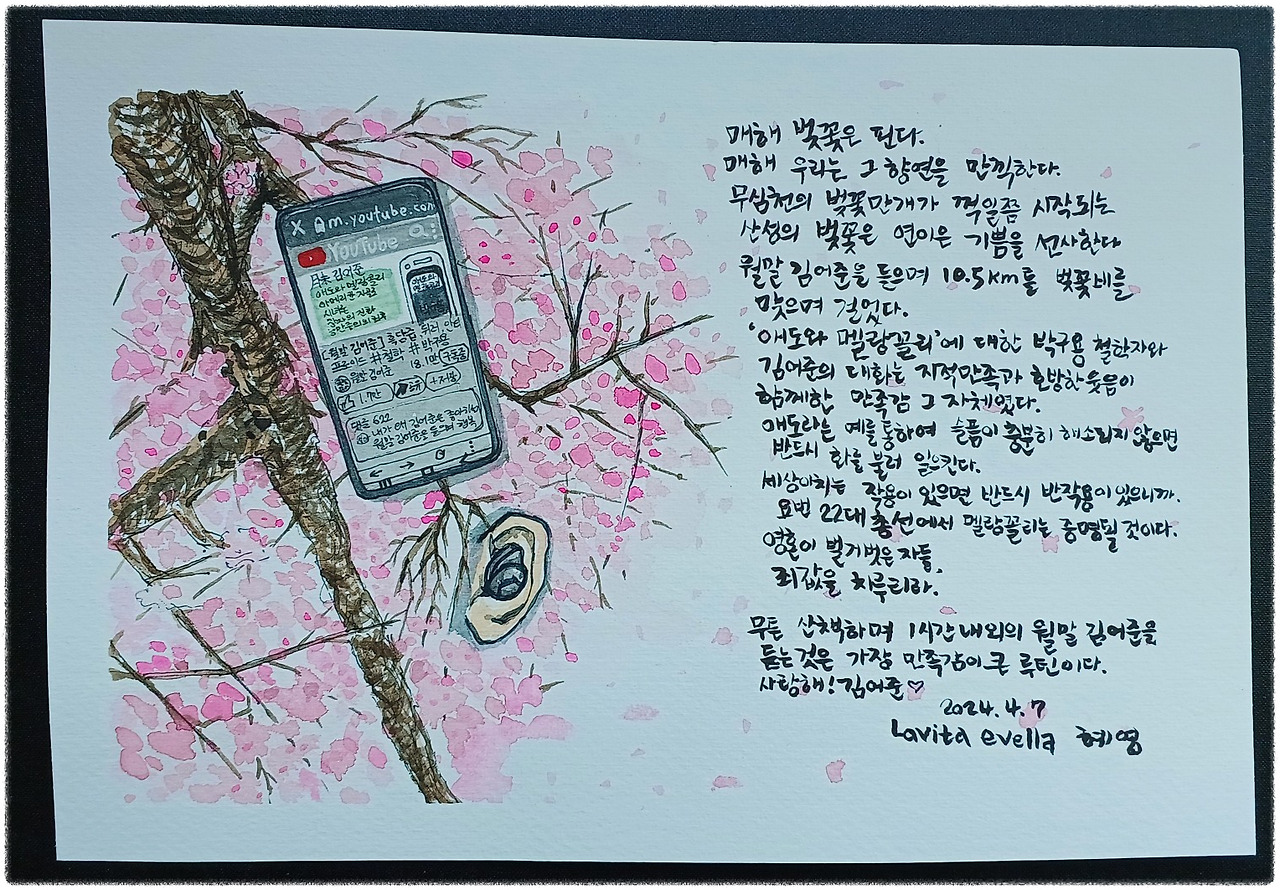 X m.youtube.com
YouTube
月末 김어준
애도와 멜랑꼴리
[월말 김어준]
프로이드 #철학 #박구용
월말 김어준 18.1만 구독중
1.7만 공유 +저장
댓글 692
내가 이래 김어준을 좋아하지
월말 김어준을 들으며 행복
매해 벚꽃은 핀다.
매해 우리는 그 향연을 만끽한다.
무심천의 벚꽃만개가 꺽일쯤 시작되는
산성의 벚꽃은 연이은 기쁨을 선사한다
월말 김어준을 들으며 10.5km를 벚꽃비를
맞으며 걸었다.
'애도와 멜랑꼴리'에 대한 박구용 철학자와
김어준의 대화는 지적만족과 호방한 웃음이
함께한 만족감 그 자체였다.
애도라는 예를 통하여 슬픔이 충분히 해소되지 않으면
반드시 화를 불러 일으킨다.
세상이치는 작용이 있으면 반드시 반작용이 있으니까.
요번 22대 총선에서 멜랑꼴리는 증명될 것이다.
영혼이 벌거벗은 자들,
죄값을 치루리라.
무튼 산책하며 1시간 내외의 월말 김어준을
듣는것은 가장 만족감이 큰 루틴이다.
사랑해! 김어준♡
2024. 4. 7
Lavita evella 혜영